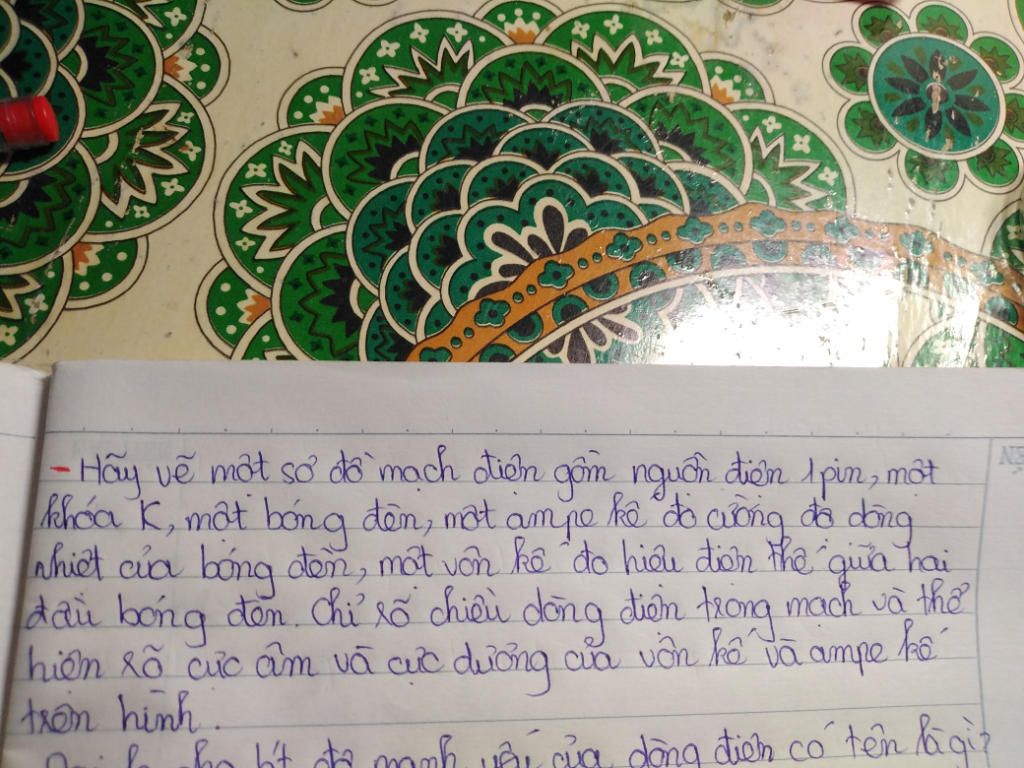 - Hãy vẽ một sơ đồ mạch điện gồm nguồn điện 1pin, một
khóa K, một bóng đèn, một ampe kế đo cường độ dòng
nhiệt của bóng đèn, một vôn kế đo hiệu điện thế giữa hai
đầu bóng đèn. Chỉ rõ chiều dòng điện trong mạch và thể
hiện rõ cực âm và cực dương của vôn kế và ampe kế
trên hình.
độ mạnh yếu của dòng điện có tên là gì?